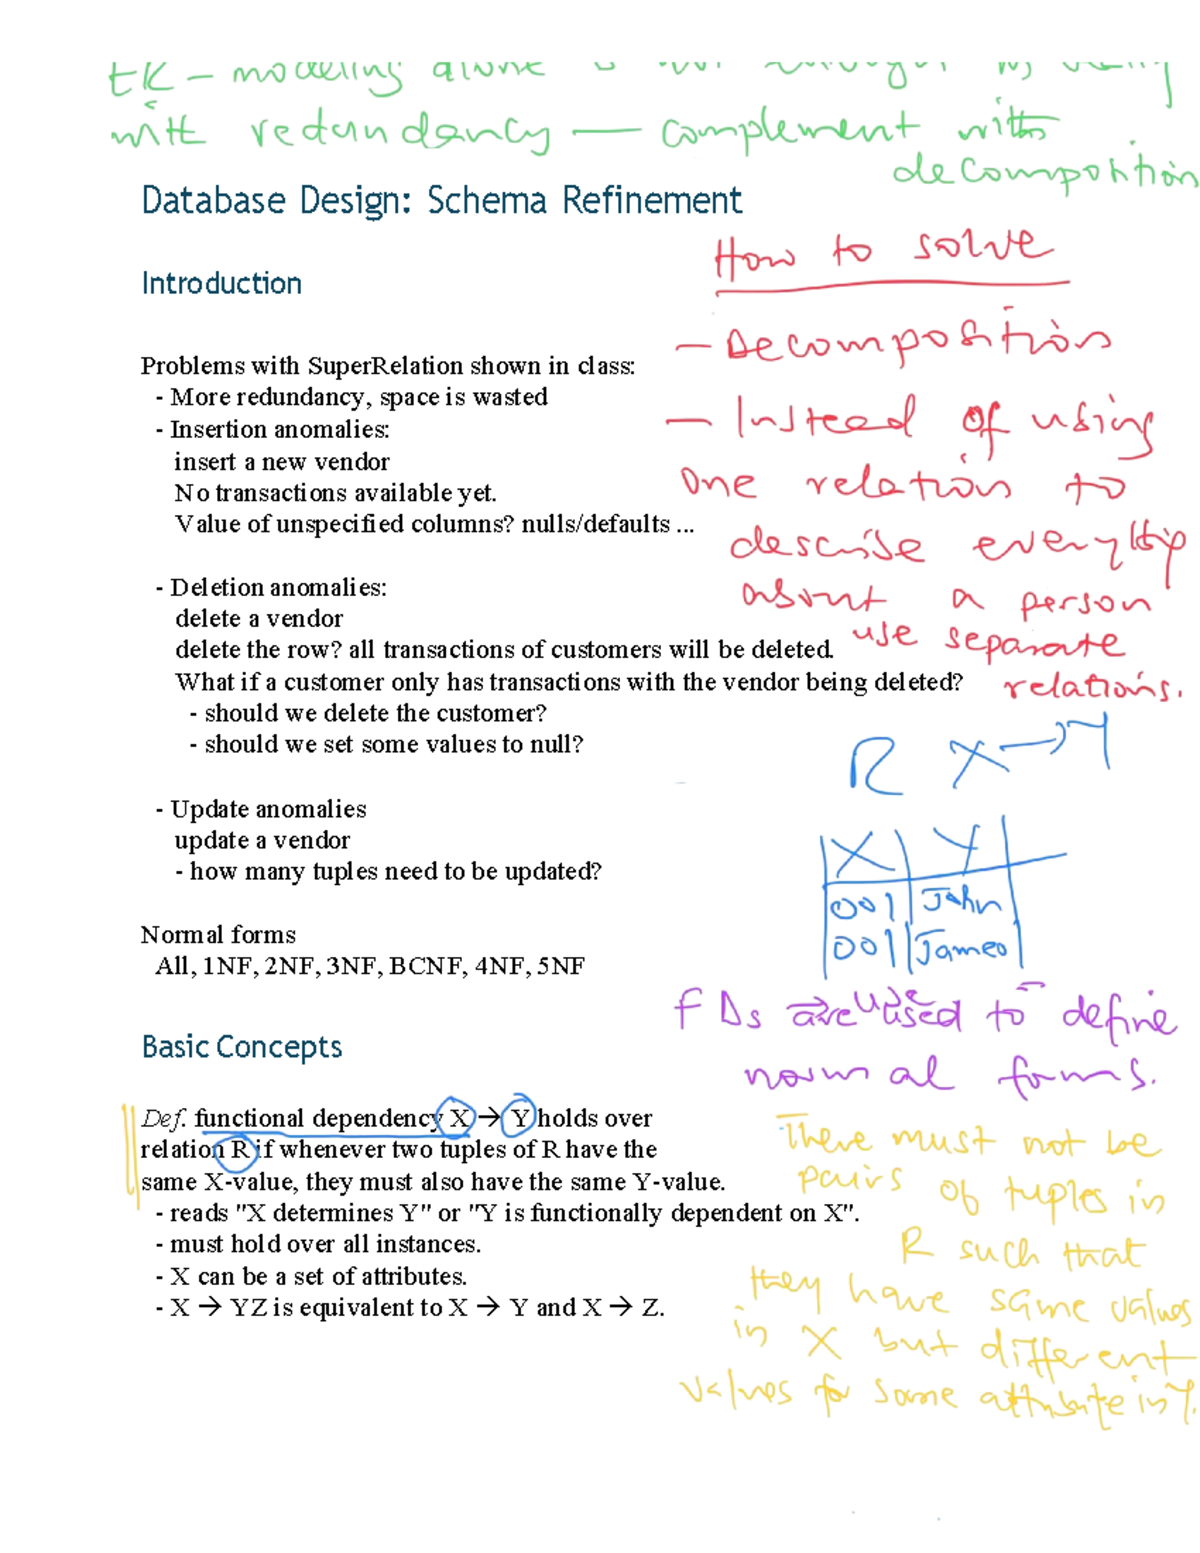 ER - modeling alone is not enough in dealing
with redundancy — complement with
decomposition
Database Design: Schema Refinement
How to solve
Introduction
- Decomposition
Problems with SuperRelation shown in class:
- More redundancy, space is wasted
- Insertion anomalies:
insert a new vendor
No transactions available yet.
Value of unspecified columns? nulls/defaults ...
- Instead of using
one relation to
describe everythip
about a person
use separate
relations.
- Deletion anomalies:
delete a vendor
delete the row? all transactions of customers will be deleted.
What if a customer only has transactions with the vendor being deleted?
- should we delete the customer?
- should we set some values to null?
R X → Y
- Update anomalies
update a vendor
- how many tuples need to be updated?
X Y
001 John
001 James
Normal forms
All, 1NF, 2NF, 3NF, BCNF, 4NF, 5NF
FDs are used to define
normal forms.
Basic Concepts
Def. functional dependency X → Y holds over
relation R if whenever two tuples of R have the
same X-value, they must also have the same Y-value.
- reads "X determines Y" or "Y is functionally dependent on X".
- must hold over all instances.
- X can be a set of attributes.
- X → YZ is equivalent to X → Y and X → Z.
There must not be
pairs of tuples in
R such that
they have same values
in X but different
values for some attribute in Y.